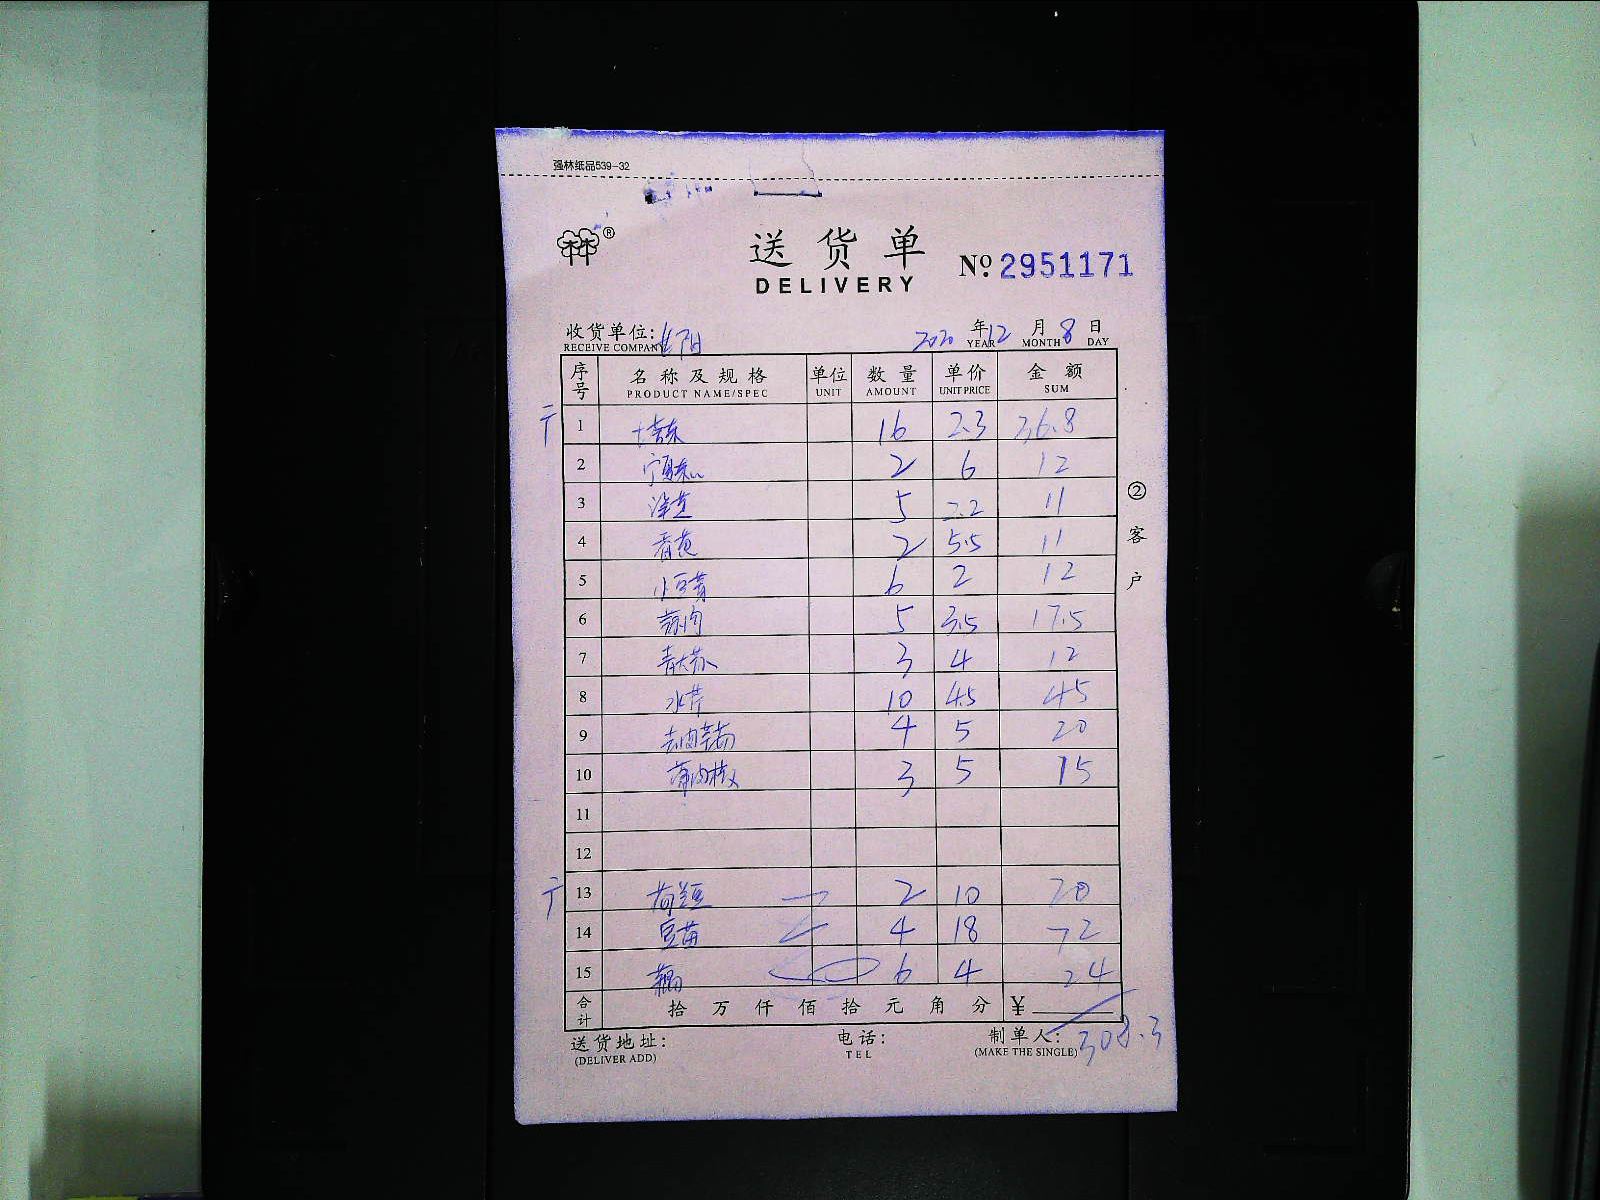 强林纸品539-32
®
送货单
DELIVERY
№ 2951171
收货单位:
RECEIVE COMPANY
2020 年 12 月 8 日
YEAR MONTH DAY
序号 名称及规格 单位 数量 单价 金额
PRODUCT NAME/SPEC UNIT AMOUNT UNIT PRICE SUM
1 16 2.3 36.8
2 2 6 12
3 5 2.2 11
4 2 5.5 11
5 小豆芽 6 2 12
6 5 3.5 17.5
7 3 4 12
8 水芹 10 4.5 45
9 4 5 20
10 3 5 15
11
12
13 荷兰豆 2 10 20
14 豆苗 4 18 72
15 6 4 24
合计 拾 万 仟 佰 拾 元 角 分 ¥
308.3
送货地址: 电话: 制单人:
(DELIVER ADD) TEL (MAKE THE SINGLE)
②客户